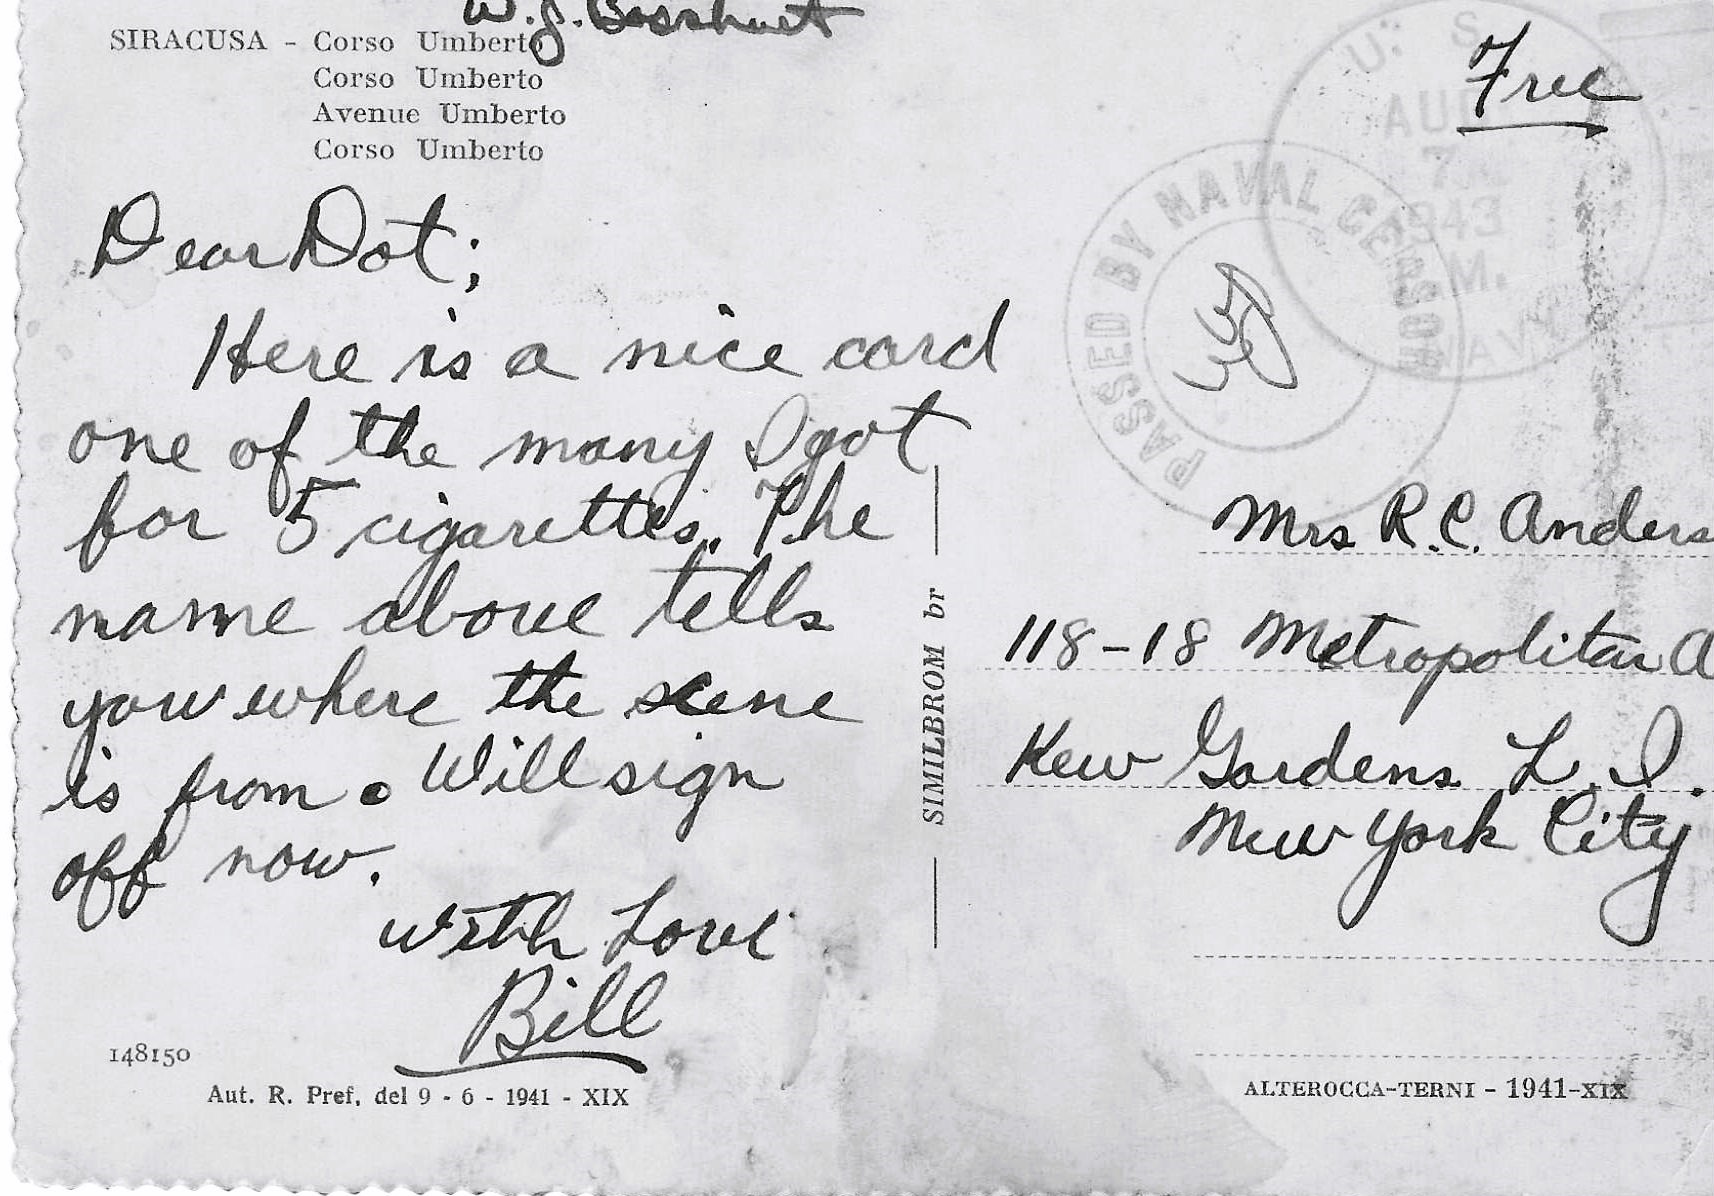 W. J. Bosshart
SIRACUSA - Corso Umberto
Corso Umberto
Avenue Umberto
Corso Umberto
Dear Dot;
Here is a nice card
one of the many I got
for 5 cigarettes. The
name above tells
you where the scene
is from. Will sign
off now.
With Love
Bill
148150
Aut. R. Pref. del 9 - 6 - 1941 - XIX
SIMILBROM br
Free
U. S.
AUG
7
1943
M.
NAVY
PASSED BY NAVAL CENSOR
Mrs R. C. Anders
118-18 Metropolitan A
Kew Gardens L. I.
New York City
ALTEROCCA-TERNI - 1941-XIX